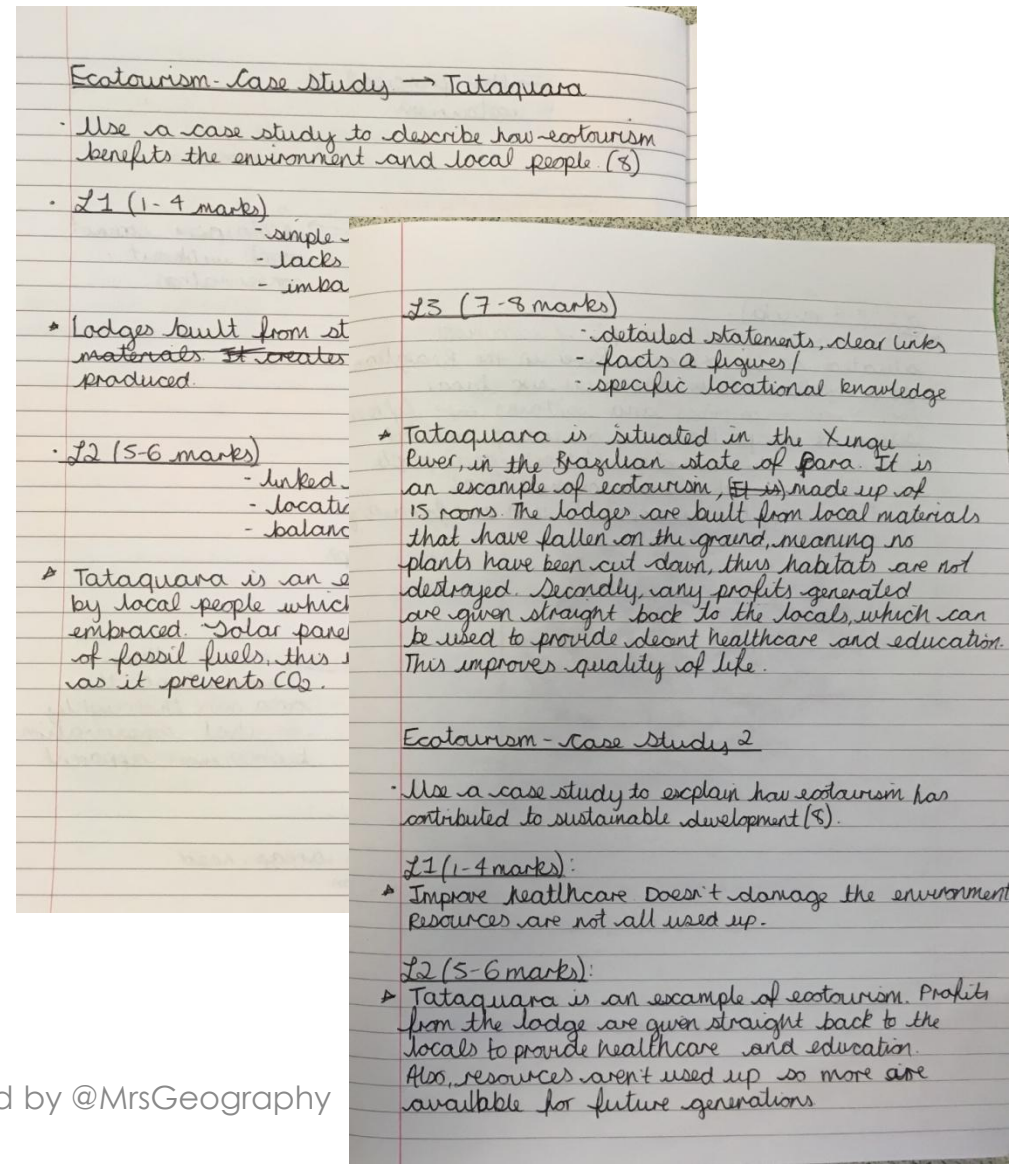 Ecotourism - Case study → Tataquara
· Use a case study to describe how ecotourism
benefits the environment and local people. (8)
· L1 (1-4 marks)
- simple
- lacks
- imba
Lodges built from st
materials. It creates
produced.
· L2 (5-6 marks)
- linked
- locatio
- balanc
Tataquara is an e
by local people which
embraced. Solar panel
of fossil fuels, this
as it prevents CO2.
L3 (7-8 marks)
- detailed statements, clear links
- facts & figures/
- specific locational knowledge
Tataquara is situated in the Xingu
River, in the Brazilian state of Para. It is
an example of ecotourism, (It is) made up of
15 rooms. The lodges are built from local materials
that have fallen on the ground, meaning no
plants have been cut down, thus habitats are not
destroyed. Secondly, any profits generated
are given straight back to the locals, which can
be used to provide decent healthcare and education.
This improves quality of life.
Ecotourism - Case Study 2
· Use a case study to explain how ecotourism has
contributed to sustainable development (8).
L1 (1-4 marks):
Improve heatlhcare Doesn't damage the environment
Resources are not all used up.
L2 (5-6 marks):
Tataquara is an example of ecotourism. Profits
from the lodge are given straight back to the
locals to provide healthcare and education.
Also, resources aren't used up so more are
available for future generations
d by @MrsGeography